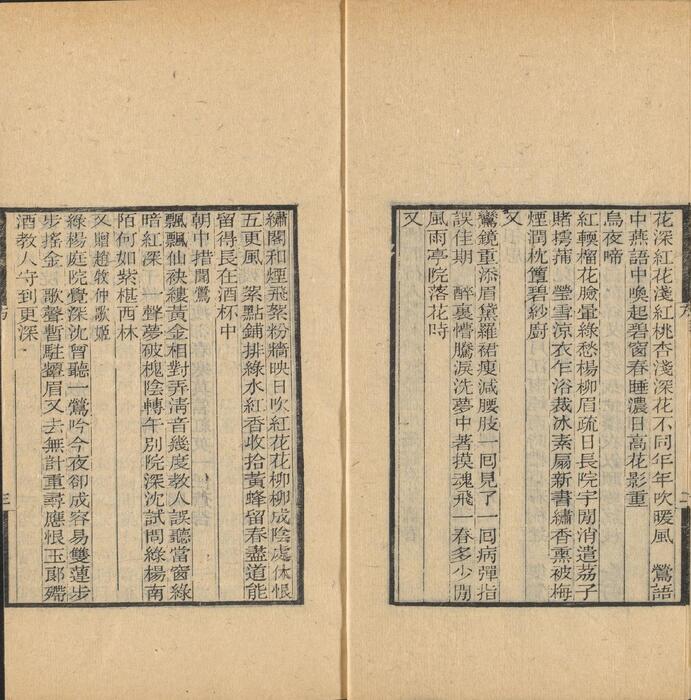 花深紅花淺紅桃杏淺深花不同年年吹暖風　鶯語
中燕語中喚起碧窗春睡濃日高花影重
烏夜啼
紅輭榴花臉暈綠愁楊柳眉疏日長院宇閒消遣荔子
賭摴蒱　瑩雪涼衣乍浴裁冰素扇新書繡香熏被梅
煙潤枕簟碧紗廚
又
鸞鏡重添眉黛羅裙瘦減腰肢一回見了一回病彈指
誤佳期　醉裏懵騰淚洗夢中著摸魂飛一春多少閒
風雨亭院落花時
又
繡閣和煙飛絮粉牆映日吹紅花花柳柳成陰處休恨
五更風　絮點鋪排綠水紅香收拾黃蜂留春盡道能
留得長在酒杯中
朝中措聞鶯
飄飄仙袂縷黃金相對弄清音幾度教人誤聽當窗綠
暗紅深　一聲夢破槐陰轉午別院深沈試問綠楊南
陌何如紫椹西林
又贈趙牧仲歌姬
綠楊庭院覺深沈曾聽一鶯吟今夜卻成容易雙蓮步
步搖金　歌聲暫駐顰眉又去無計重尋應恨玉郎殢
酒教人守到更深
二
三